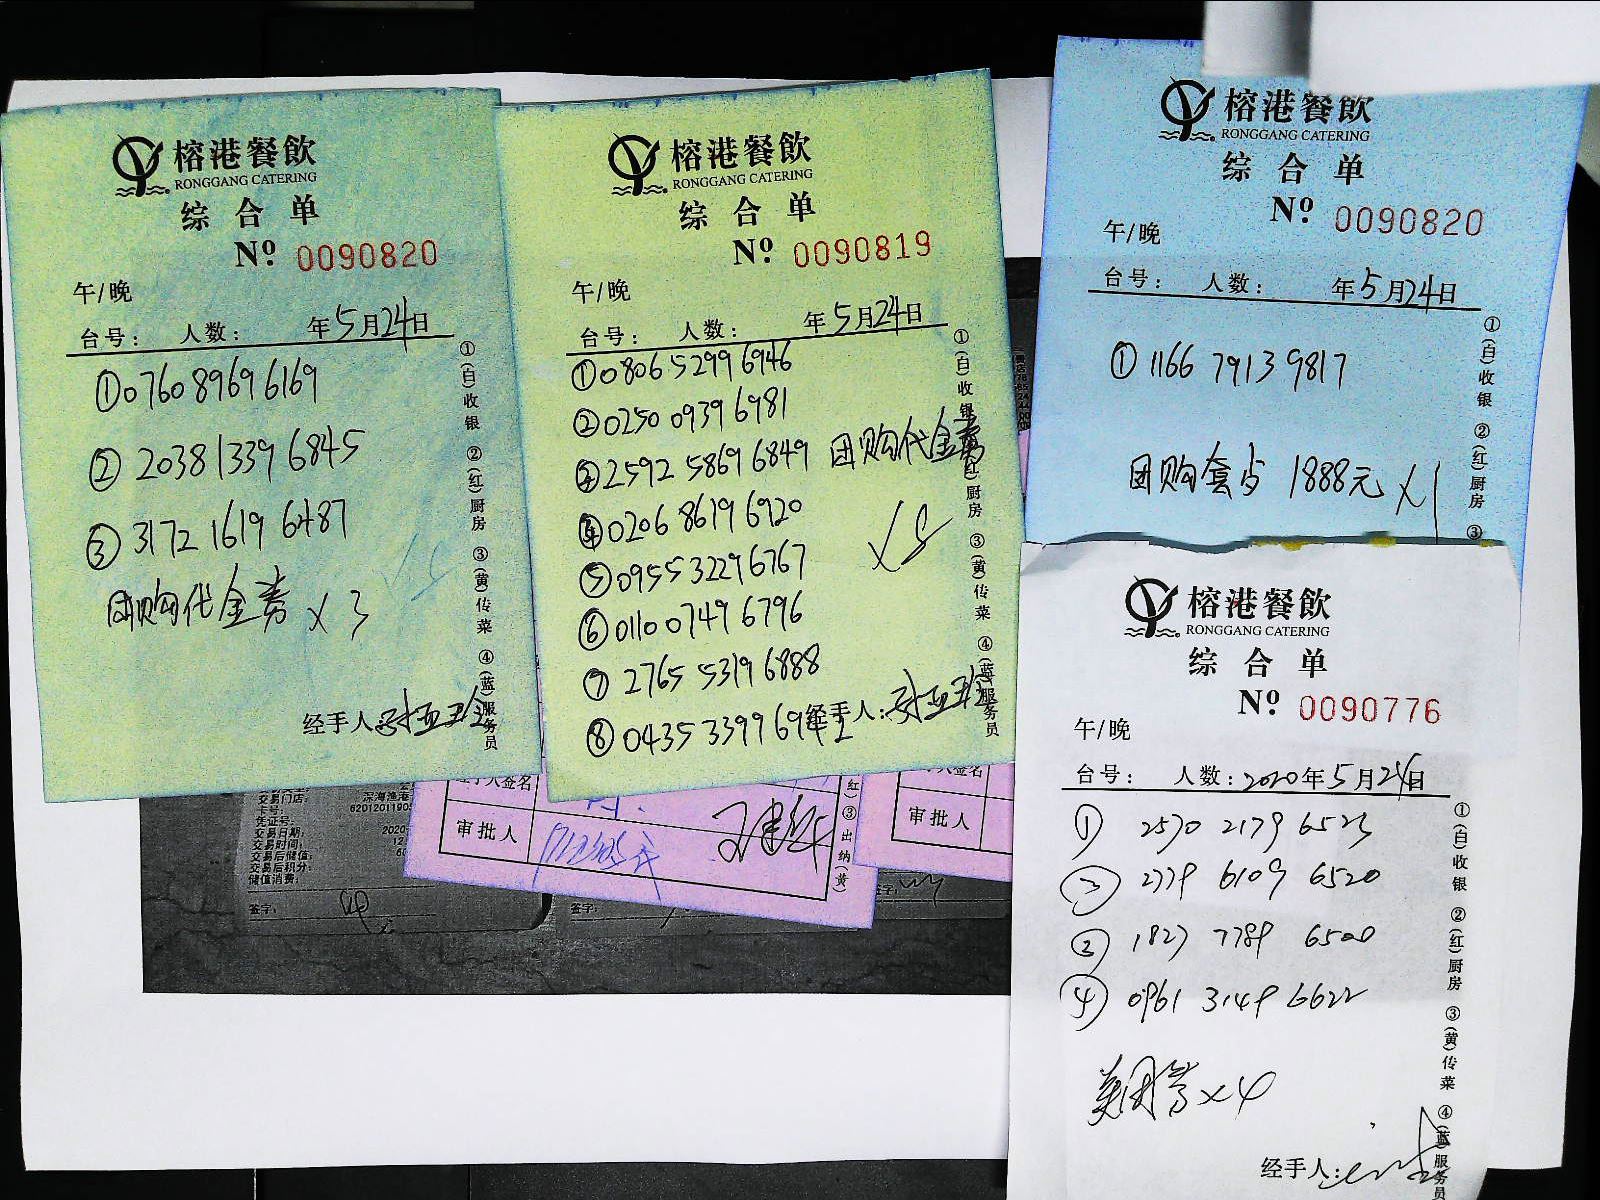 榕港餐飲
RONGGANG CATERING
综合单
Nº 0090820
午/晚
台号： 人数： 年5月24日
①0760 8969 6169
②2038 1339 6845
③3172 1619 6487
团购代金券 x 3
经手人
①(白)收银 ②(红)厨房 ③(黄)传菜 ④(蓝)服务员
榕港餐飲
RONGGANG CATERING
综合单
Nº 0090819
午/晚
台号： 人数： 年5月24日
①0806 5299 6946
②0250 0939 6981
③2592 5869 6849 团购代金券
④0206 8619 6920
x8
⑤0955 3229 6767
⑥0110 0749 6796
⑦2765 5319 6888
⑧0435 3399
经手人：
①(白)收银 ②(红)厨房 ③(黄)传菜 ④(蓝)服务员
榕港餐飲
RONGGANG CATERING
综合单
Nº 0090820
午/晚
台号： 人数： 年5月24日
①1166 7913 9817
团购套 1888元 x1
①(白)收银 ②(红)厨房 ③
榕港餐飲
RONGGANG CATERING
综合单
Nº 0090776
午/晚
台号： 人数：2020年5月24日
① 2570 2179 6523
② 2779 6109 6520
③ 1827 7789 6500
④ 0961 3149 6622
美团券x4
经手人：
①(白)收银 ②(红)厨房 ③(黄)传菜 ④(蓝)服务员
交易门店： 深海渔港
卡号
凭证号：
交易日期： 2020
交易时间：
交易后储值：
交易后积分：
储值消费：
签字：
人签名
审批人
③出纳(黄)
人签名
审批人
签字：